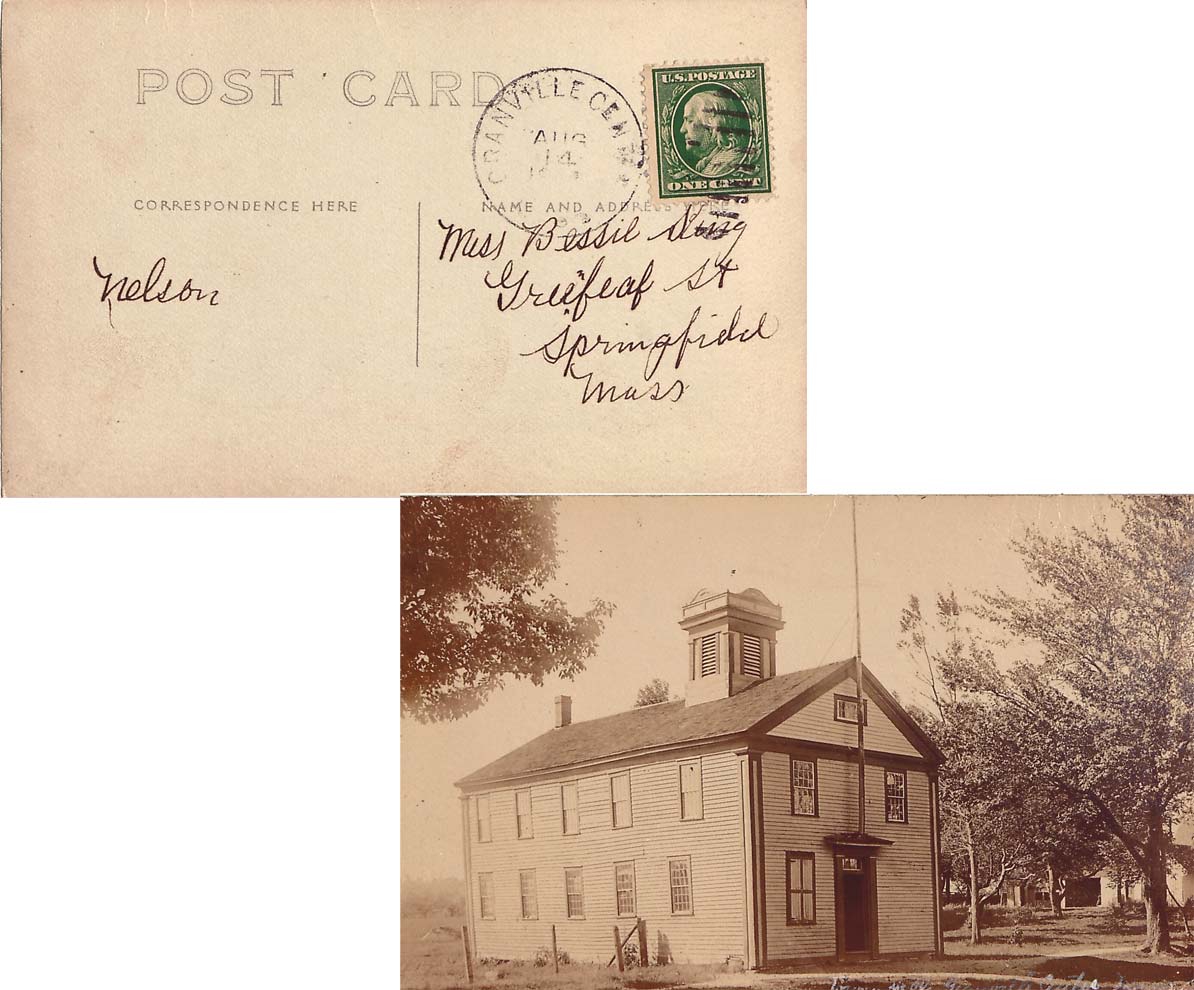 POST CARD
GRANVILLE CEN
AUG
14
U.S. POSTAGE
ONE CENT
CORRESPONDENCE HERE
NAME AND ADDRESS HERE
Miss Bessie King
Nelson
St
Springfield
Mass